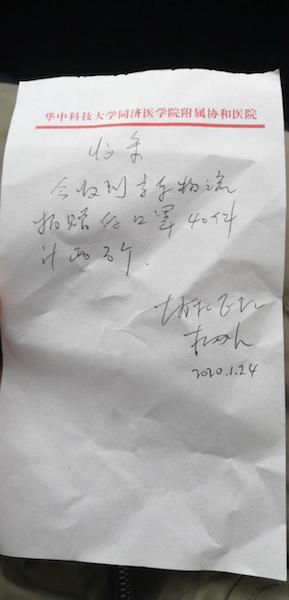 华中科技大学同济医学院附属协和医院
收条
今收到京东物流
捐赠的口罩40件
计 万个.
2020.1.24